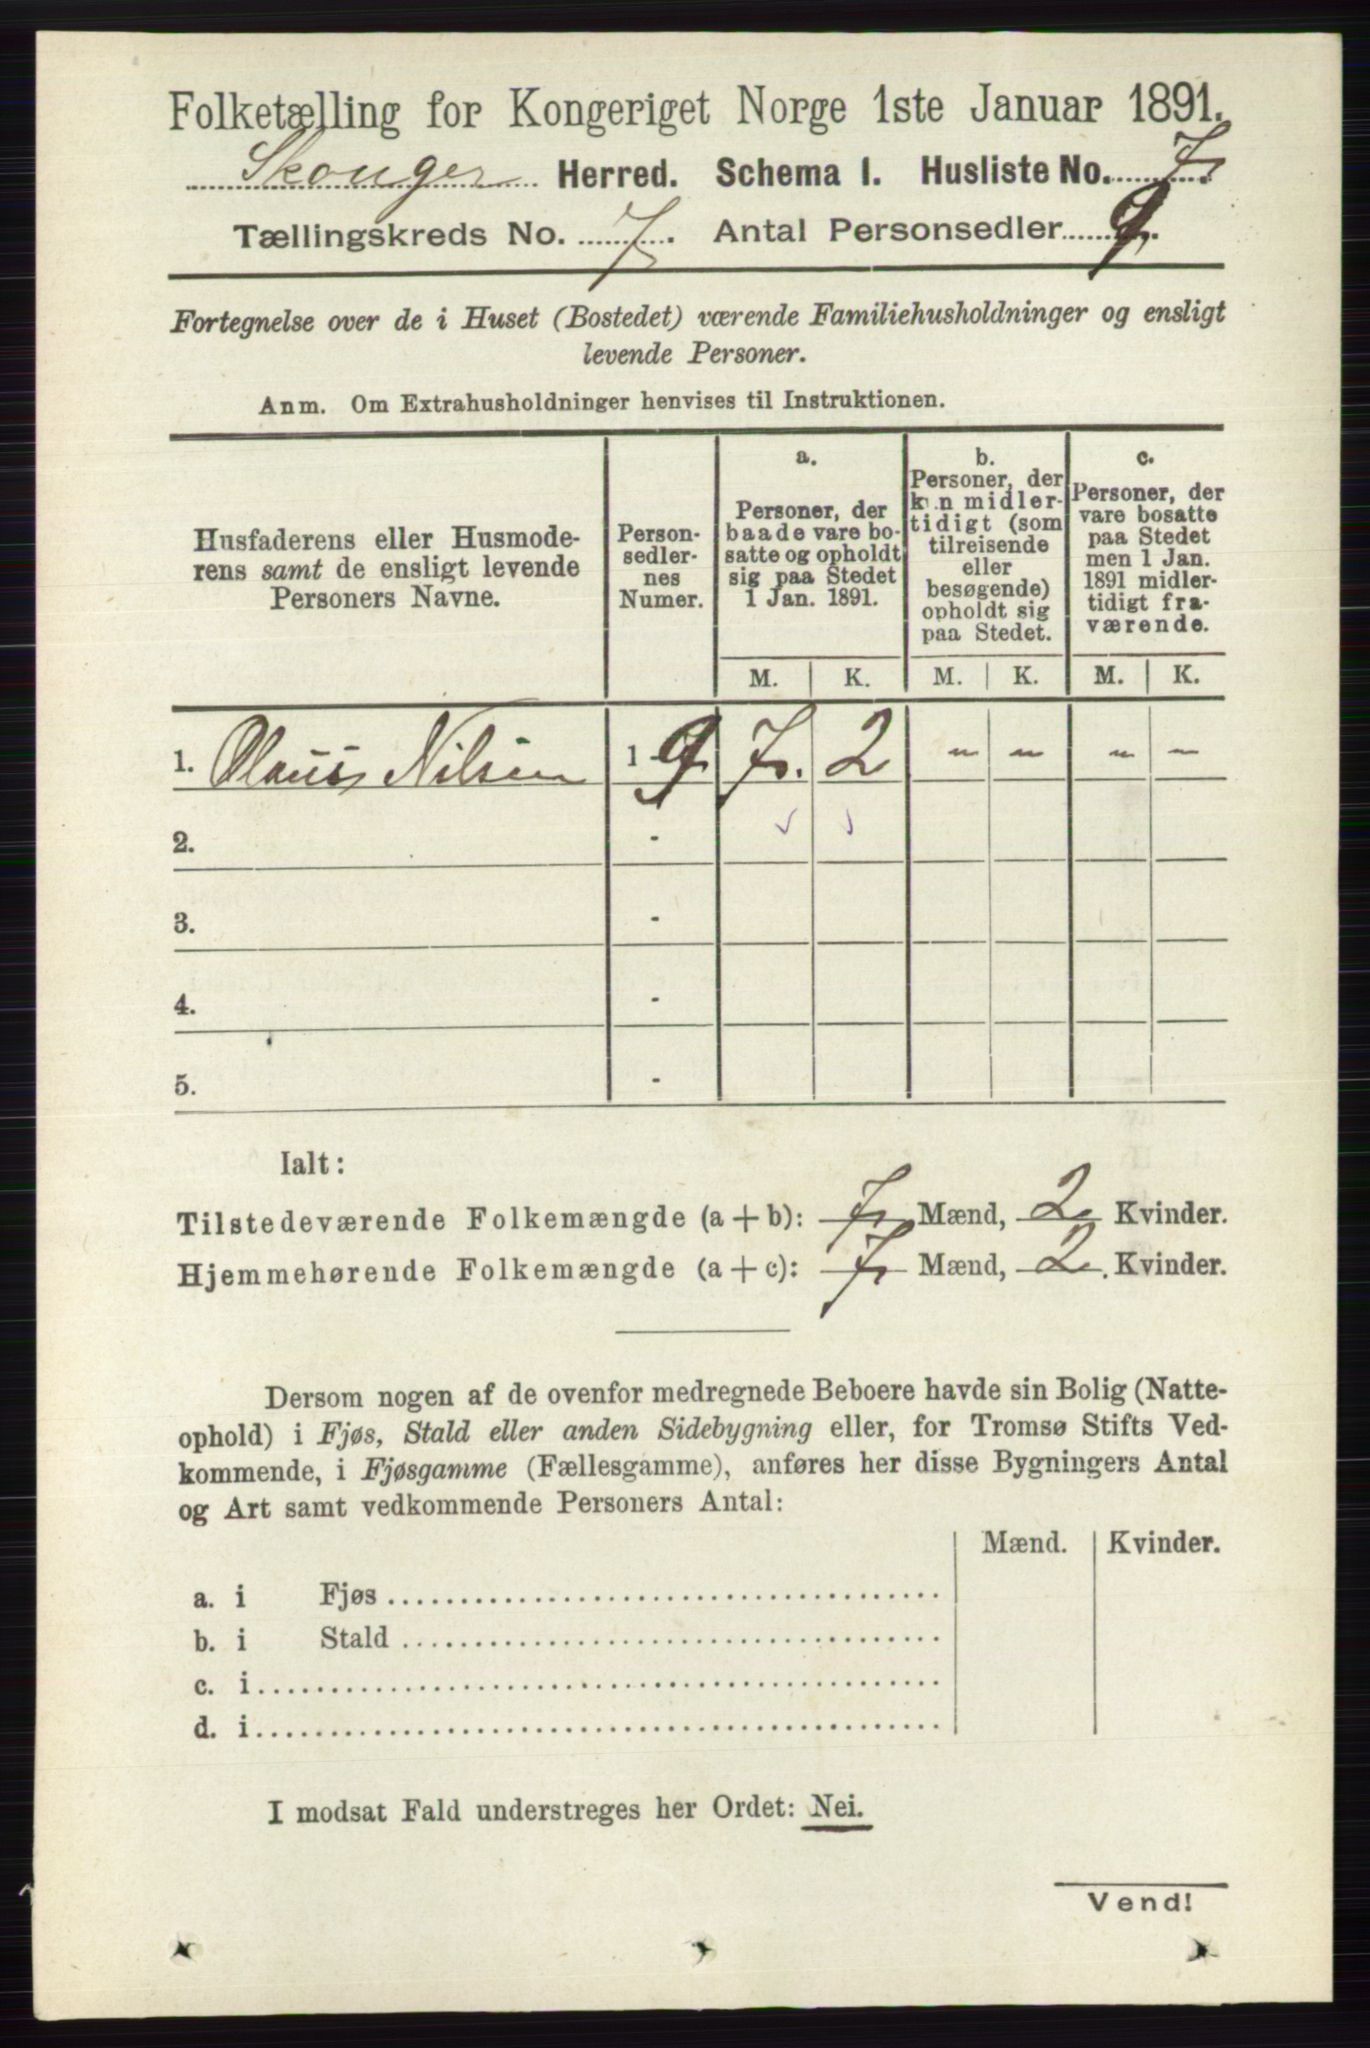 Folketælling for Kongeriget Norge 1ste Januar 1891.
Skouger Herred. Schema I. Husliste No. 7.
Tællingskreds No. 7. Antal Personsedler 9.
Fortegnelse over de i Huset (Bostedet) værende Familiehusholdninger og ensligt
levende Personer.
Anm. Om Extrahusholdninger henvises til Instruktionen.
Husfaderens eller Husmode-
rens samt de ensligt levende
Personers Navne.
Person-
sedler-
nes
Numer.
a.
Personer, der
baade vare bo-
satte og opholdt
sig paa Stedet
1 Jan. 1891.
b.
Personer, der
kun midler-
tidigt (som
tilreisende
eller
besøgende)
opholdt sig
paa Stedet.
c.
Personer, der
vare bosatte
paa Stedet
men 1 Jan.
1891 midler-
tidigt fra-
værende.
M. K. M. K. M. K.
1. Olaus Nilsen 1-9. 7. 2 - - - -
2. -
3. -
4. -
5. -
Ialt:
Tilstedeværende Folkemængde (a + b): 7 Mænd, 2 Kvinder.
Hjemmehørende Folkemængde (a + c): 7 Mænd, 2. Kvinder.
Dersom nogen af de ovenfor medregnede Beboere havde sin Bolig (Natte-
ophold) i Fjøs, Stald eller anden Sidebygning eller, for Tromsø Stifts Ved-
kommende, i Fjøsgamme (Fællesgamme), anføres her disse Bygningers Antal
og Art samt vedkommende Personers Antal:
Mænd. Kvinder.
a. i Fjøs
b. i Stald
c. i
d. i
I modsat Fald understreges her Ordet: Nei.
Vend!